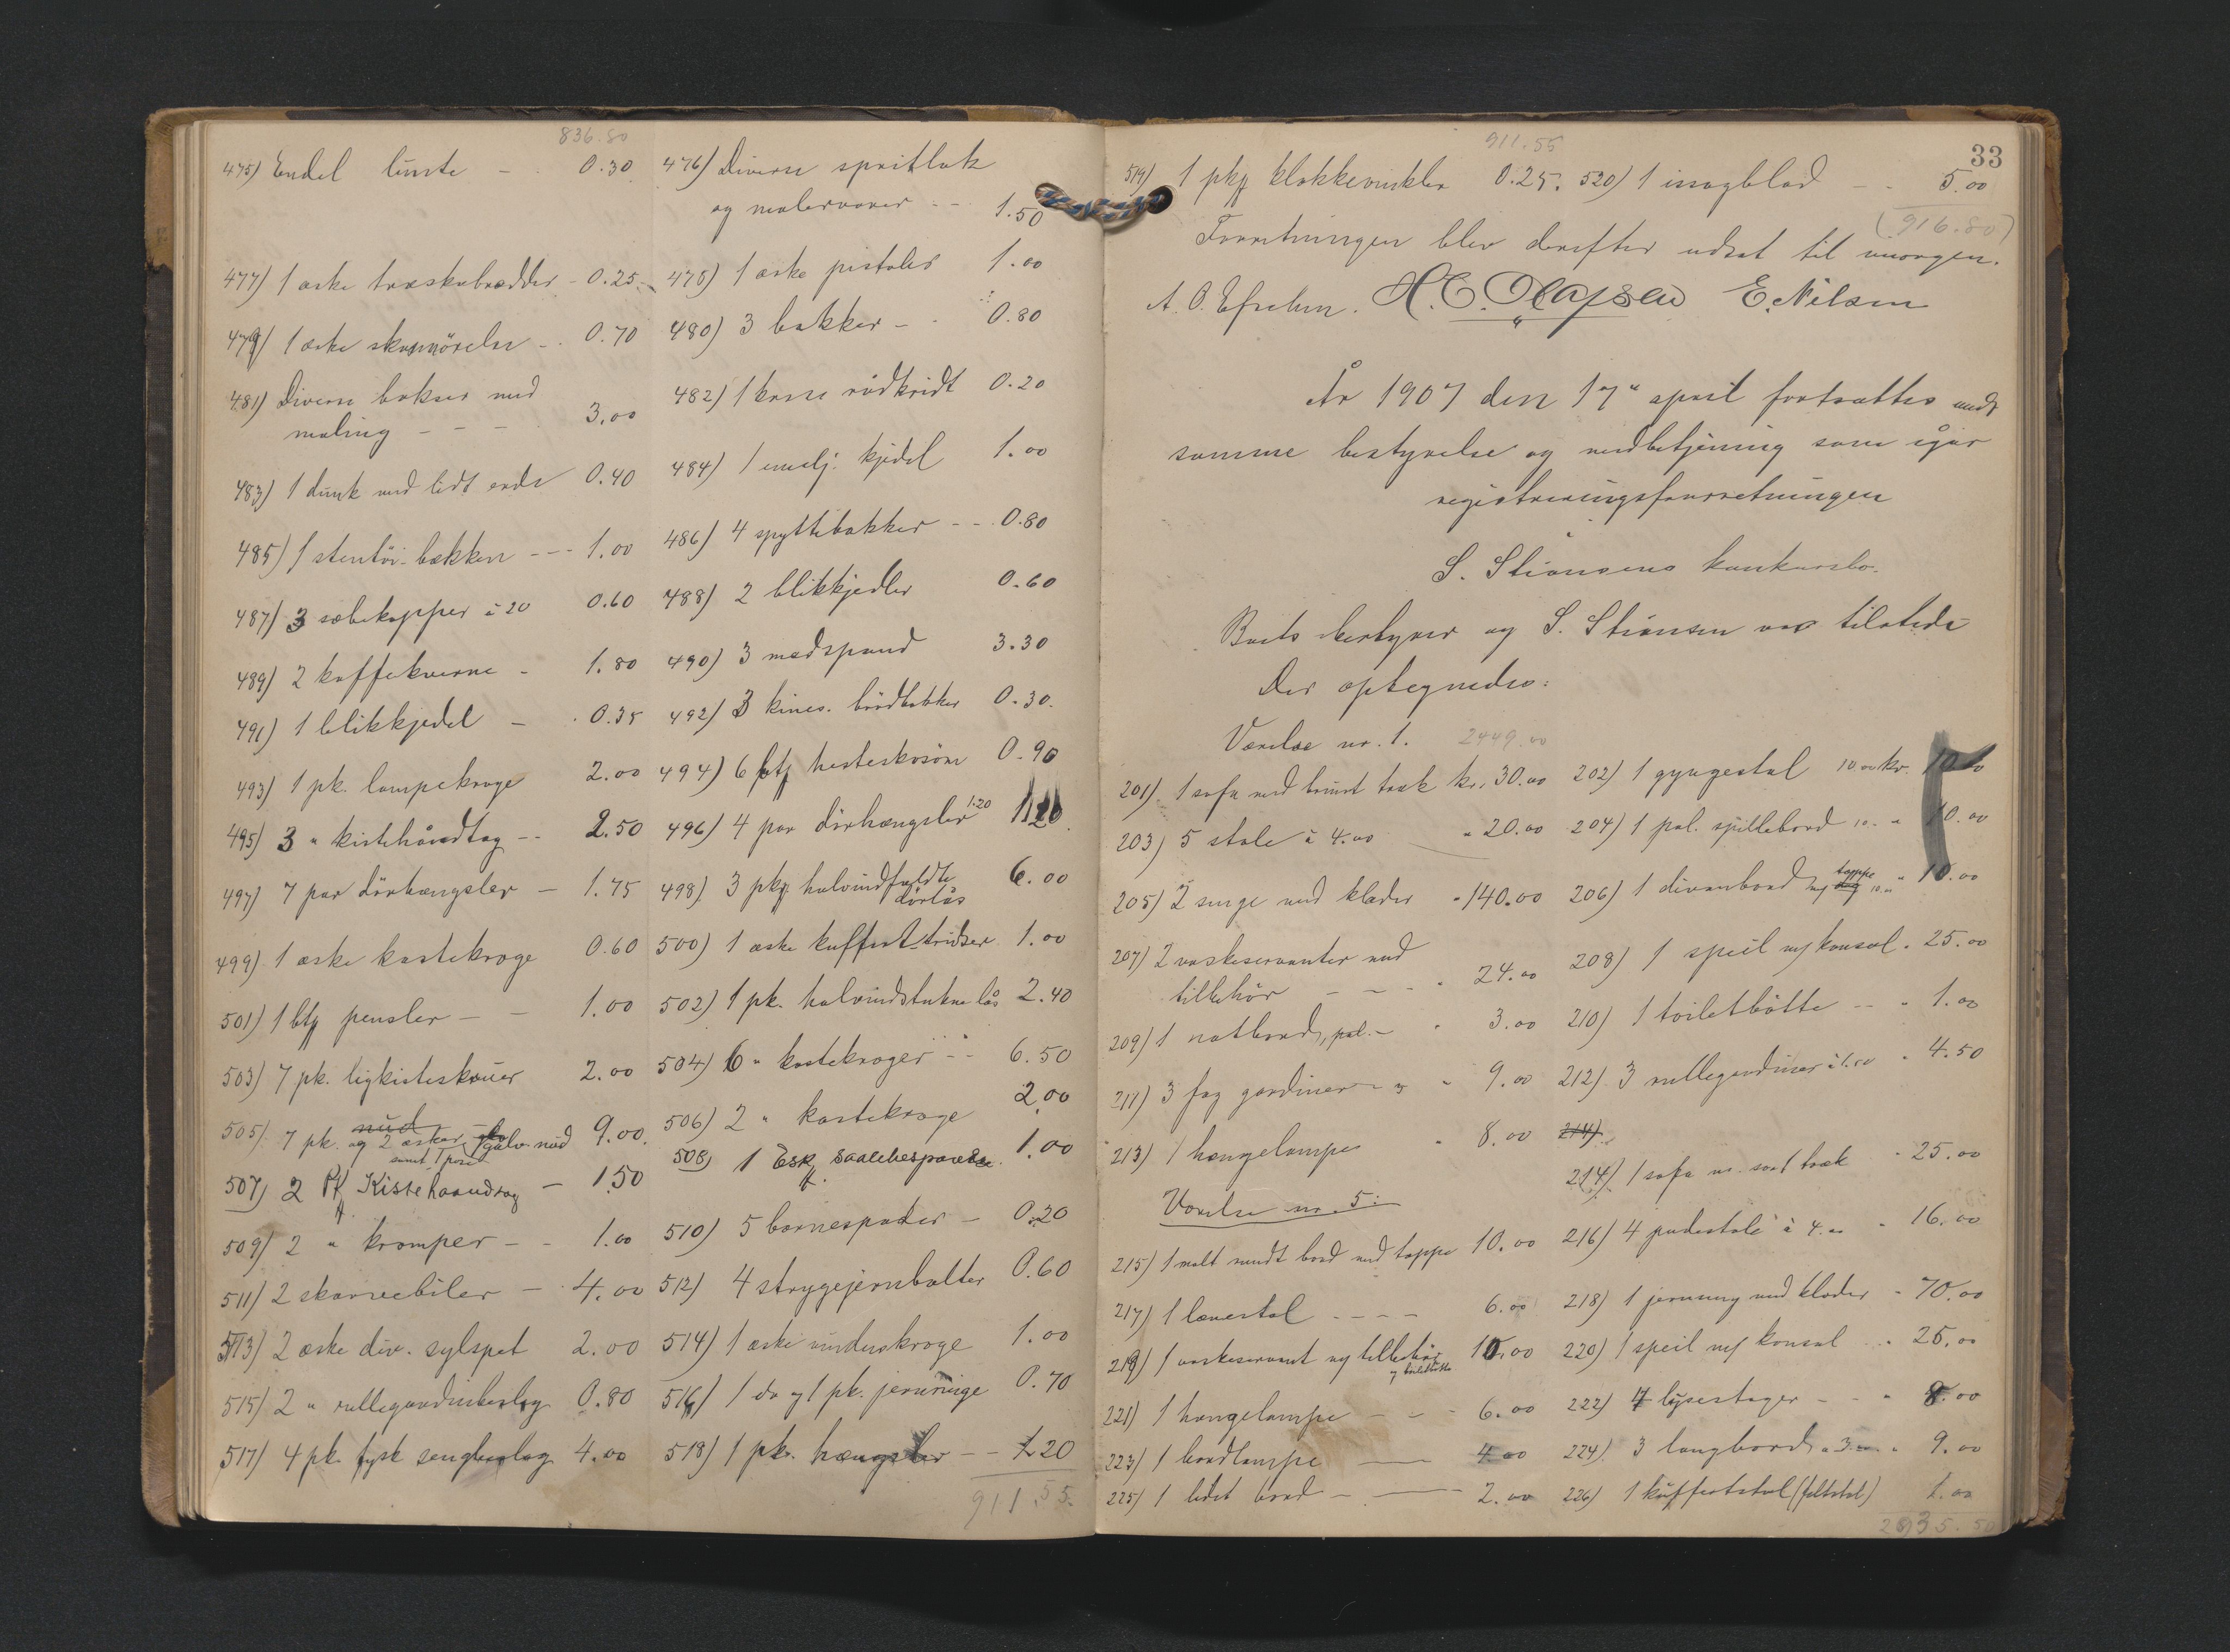 836.80
475) Endel lunte - 0.30 476) Diverse spritlak
og malervarer - - 1.50
477) 1 æske træskobredder - 0.25 478) 1 æske pistoler 1.00
479) 1 æske - 0.70 480) 3 bakker - 0.80
481) Diverse bokser med
maling - - - 3.00 482) 1 kasse rödkridt 0.20
483) 1 dunk med lidt 0.40 484) 1 emalj. kjedel 1.00
485) 1 stentöi-bekken - - - 1.00 486) 4 spyttebakker - - 0.80
487) 3 sæbekopper à 20 0.60 488) 2 blikkjedler 0.60
489) 2 kaffekverne - 1.80 490) 3 madspand 3.30
491) 1 blikkjedel - 0.35 492) 3 kines. brödbakker 0.30.
493) 1 pk. lampekroge 2.00 494) 6 hesteskosöm 0.90
495) 3 " kistehåndtag - - 2.50 496) 4 par dörhængsler 1.20 1.20
497) 7 par dörhængsler - 1.75 498) 3 pkg halvindfældte
dörlås 6.00
499) 1 æske kastekroge 0.60 500) 1 æske kuffert-tridser 1.00
501) 1 btg pensler - - 1.00 502) 1 pk. halvindstukne lås 2.40
503) 7 pk. ligkisteskruer 2.00 504) 6 " kastekroger - - 6.50
505) 7 pk. og 2 æsker galv. nud 9.00 506) 2 " kastekroge 2.00
samt 1 pose
507) 2 Pk Kistehaandtag - 1.50 508) 1 Esk 1.00
509) 2 " kramper - - 1.00 510) 5 barnespader - 0.20
511) 2 skarvebiler - 4.00 512) 4 strygejernbolter 0.60
513) 2 æske div. sylspet 2.00 514) 1 æske vinduskroge 1.00
515) 2 " rullegardinbeslag 0.80 516) 1 do og 1 pk. jernringe 0.70
517) 4 pk. tysk sengbeslag 4.00 518) 1 pk. hængsler - - 1.20
911.55
911.55
33
519) 1 pkg klokkevinkler 0.25. 520) 1 issagblad - - 5.00
(916.80)
Forretningen blev derefter udsat til imorgen.
H.C. Olafsen E. Nilsen
År 1907 den 17" april fortsattes med
samme bestyrelse og medbetjening som igår
registreringsforretningen
i
S. Stiansens konkursbo.
Boets bestyrer og S. Stiansen var tilstede
Der optegnedes:
Værelse nr. 1. 2449.00
201) 1 sofa med brunt træk kr. 30.00 202) 1 gyngestol 10.00 kr. 10.00
203) 5 stole à 4.00 " 20.00 204) 1 pol. spillebord 10.- " 10.00
205) 2 senge med klæder " 140.00 206) 1 divanbord m/ tæppe 10.00 " 10.00
207) 2 vaskeservanter med
tilbehör - - - " 24.00 208) 1 speil m/ konsol " 25.00
209) 1 natbord, pol. - " 3.00 210) 1 toiletbötte - - " 1.00
211) 3 fag gardiner à 3 " 9.00 212) 3 rullegardiner à 1.50 " 4.50
213) 1 hængelampe " 8.00 214)
Værelse nr. 5:
214) 1 sofa m. sort træk " 25.00
215) 1 malt rundt bord med tæppe 10.00 216) 4 pudestole à 4.00 " 16.00
217) 1 lænestol - - - - 6.00 218) 1 jernseng med klæder " 70.00
219) 1 vaskeservant og tilbehör 10.00 220) 1 speil m/ konsol " 25.00
og toiletbötte
221) 1 hængelampe - - - 6.00 222) 4 lysestager - - " 8.00
223) 1 bordlampe - 4.00 224) 3 langbord à 3.00 " 9.00
225) 1 lidet bord - - 2.00 226) 1 kuffertstol (feltstol) 1.00
2935.50